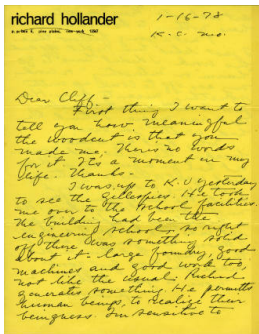 richard hollander
1-16-78
K.C. Mo.
Dear Cliff,-
First thing I want to
tell you how meaningful
the woodcut is that you
made me. There's no words
for it. It's a moment in my
life. Thanks-
I was up to K.U yesterday
to see the Gillespies. He took
me out to the school facilities.
the building had been the
engineering school, so right
off there was something solid
about it - large foundry, good
machines and good wood, too,
not like the usual. Richard
generates something. He permitts
human beings, to realize their
beingness. I'm sensitive to